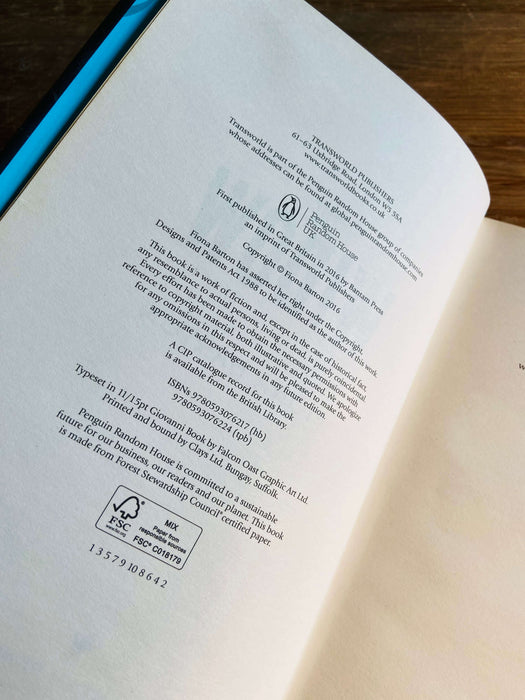 TRANSWORLD PUBLISHERS
61–63 Uxbridge Road, London W5 5SA
www.transworldbooks.co.uk
Transworld is part of the Penguin Random House group of companies
whose addresses can be found at global.penguinrandomhouse.com
Penguin
Random House
UK
First published in Great Britain in 2016 by Bantam Press
an imprint of Transworld Publishers
Copyright © Fiona Barton 2016
Fiona Barton has asserted her right under the Copyright,
Designs and Patents Act 1988 to be identified as the author of this work.
This book is a work of fiction and, except in the case of historical fact,
any resemblance to actual persons, living or dead, is purely coincidental.
Every effort has been made to obtain the necessary permissions with
reference to copyright material, both illustrative and quoted. We apologize
for any omissions in this respect and will be pleased to make the
appropriate acknowledgements in any future edition.
A CIP catalogue record for this book
is available from the British Library.
ISBNs 9780593076217 (hb)
9780593076224 (tpb)
Typeset in 11/15pt Giovanni Book by Falcon Oast Graphic Art Ltd.
Printed and bound by Clays Ltd, Bungay, Suffolk.
Penguin Random House is committed to a sustainable
future for our business, our readers and our planet. This book
is made from Forest Stewardship Council® certified paper.
FSC
www.fsc.org
MIX
Paper from
responsible sources
FSC® C018179
1 3 5 7 9 10 8 6 4 2
w